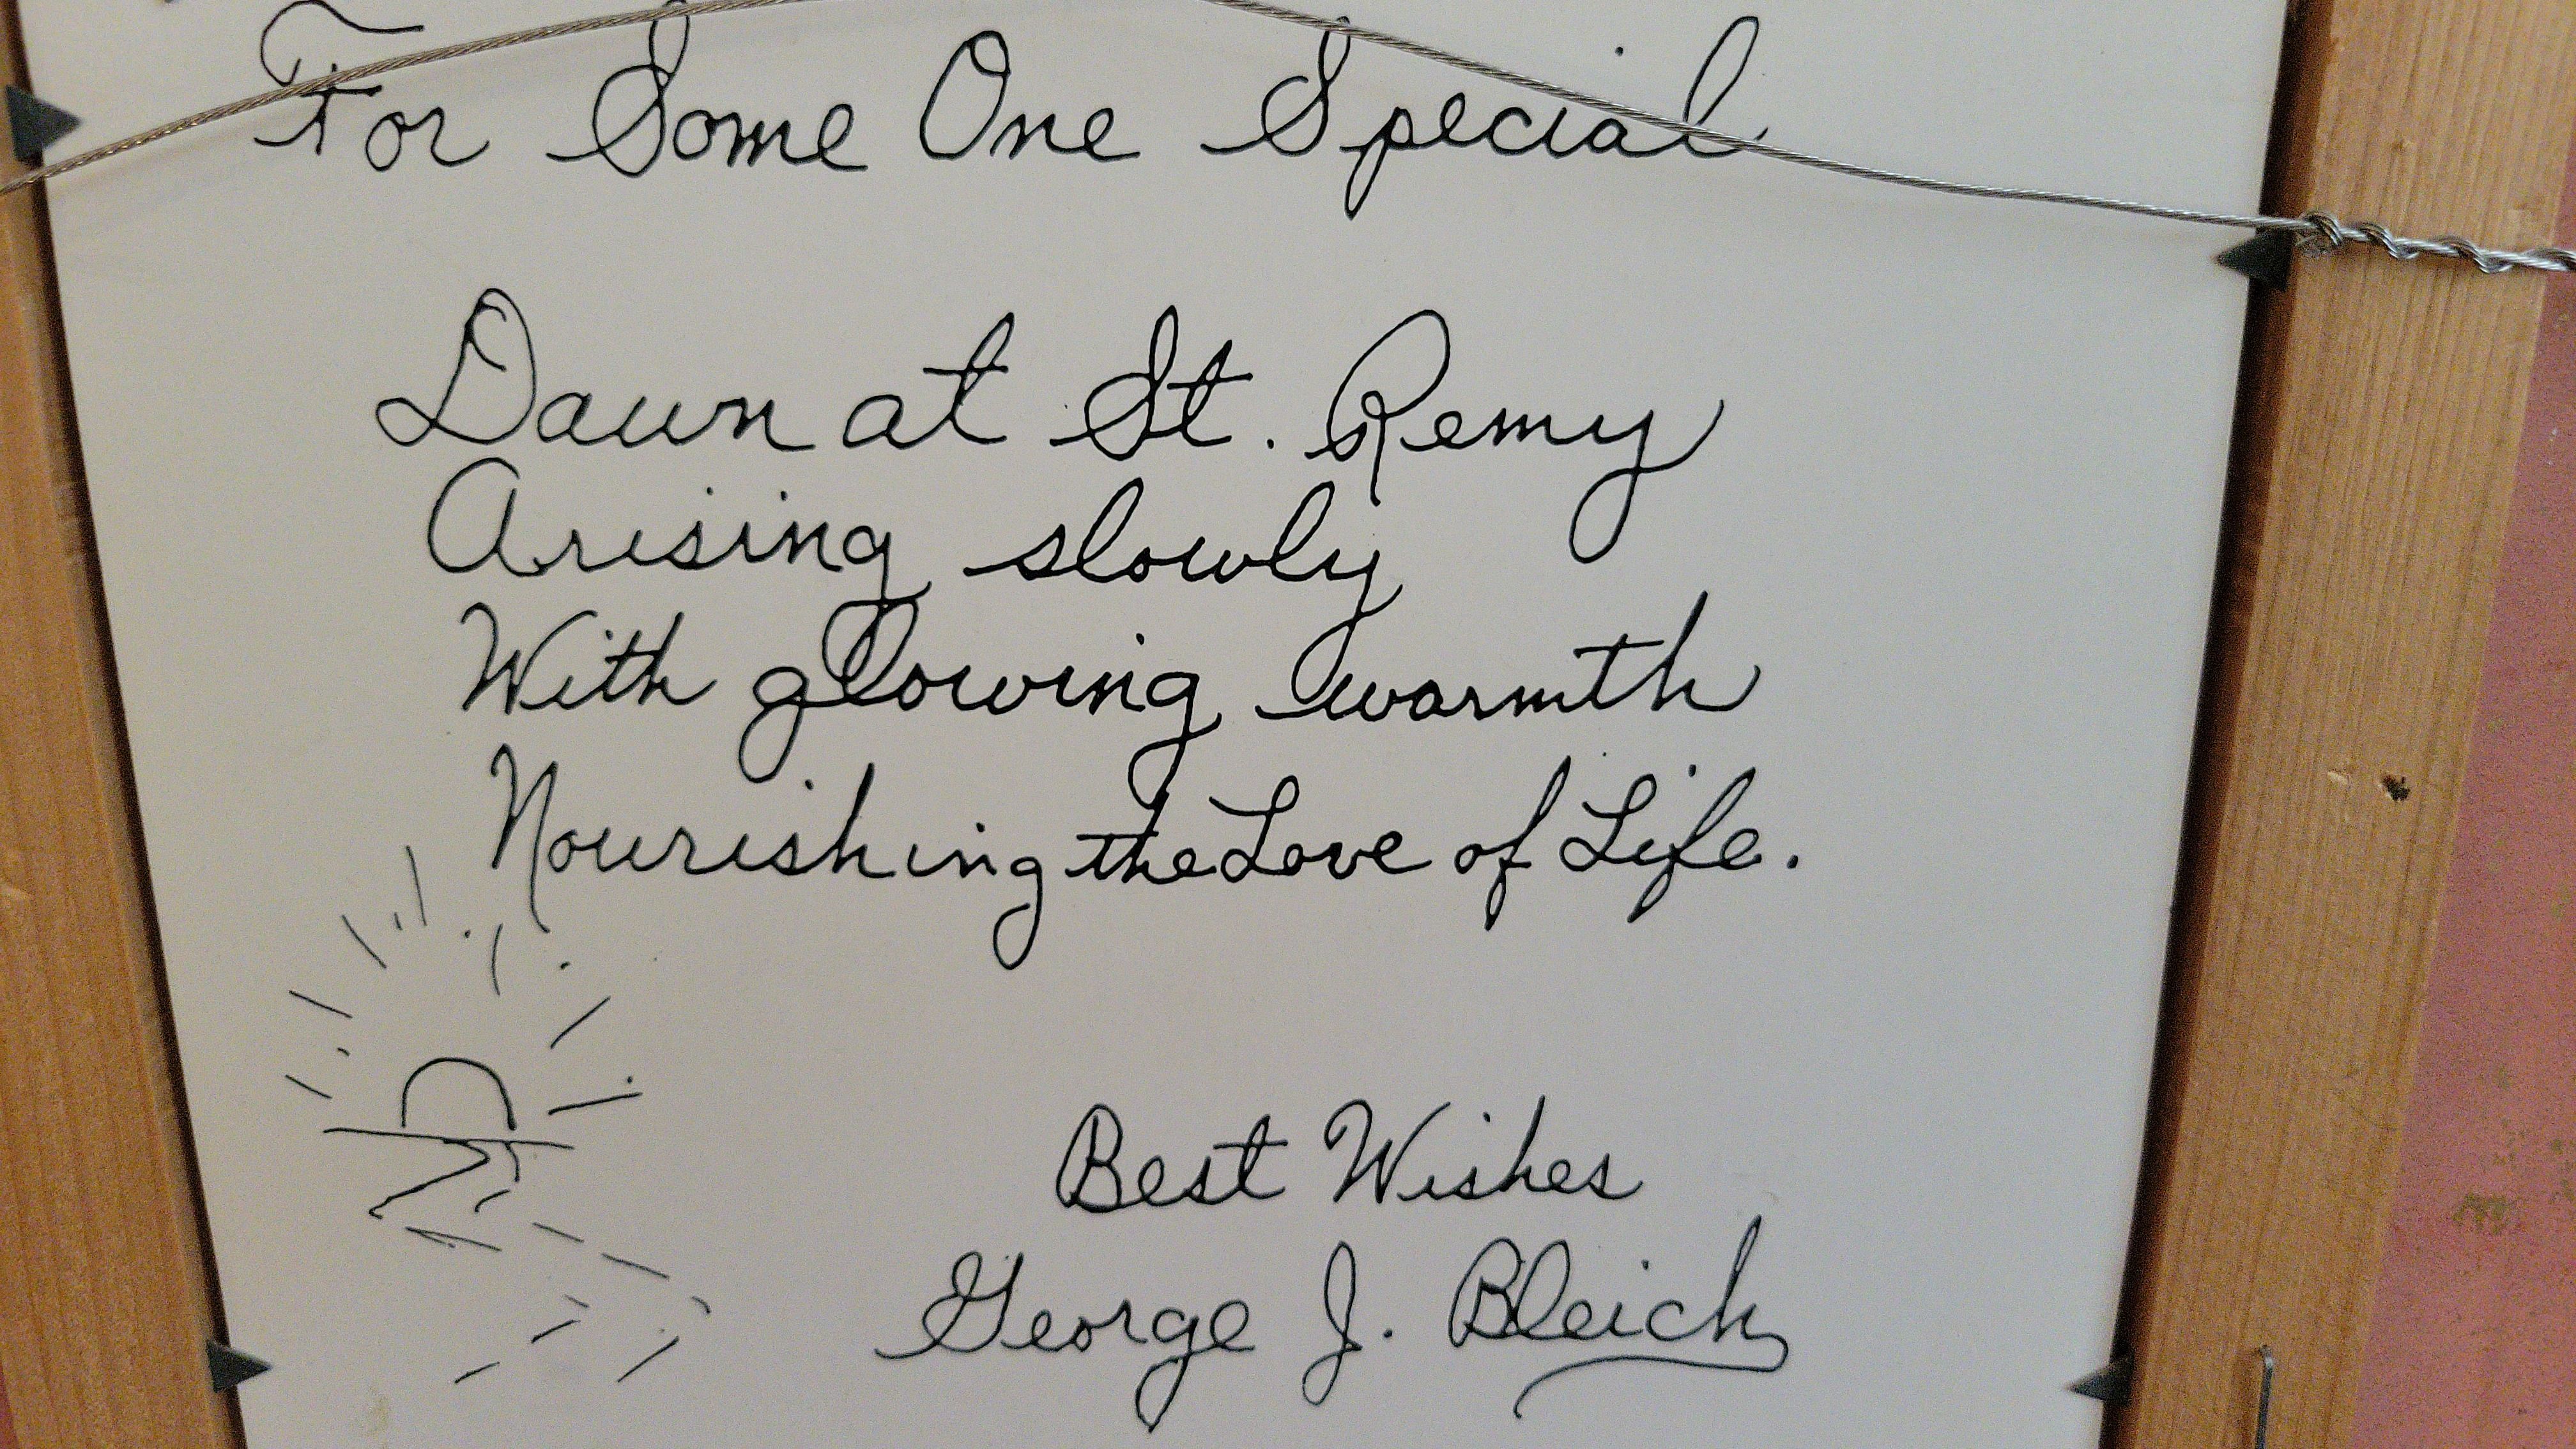 For Some One Special
Dawn at St. Remy
Arising slowly
With glowing warmth
Nourishing the Love of Life.
Best Wishes
George J. Bleich